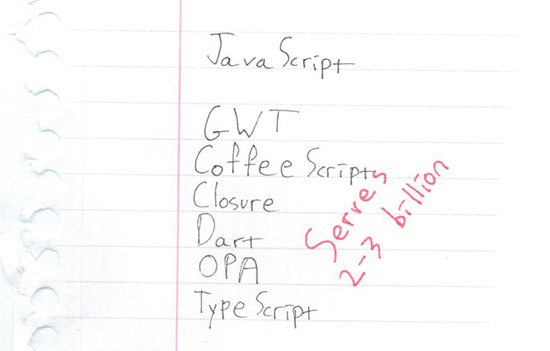 JavaScript
GWT
CoffeeScript
Closure
Dart
OPA
TypeScript
Serves
2-3 billion